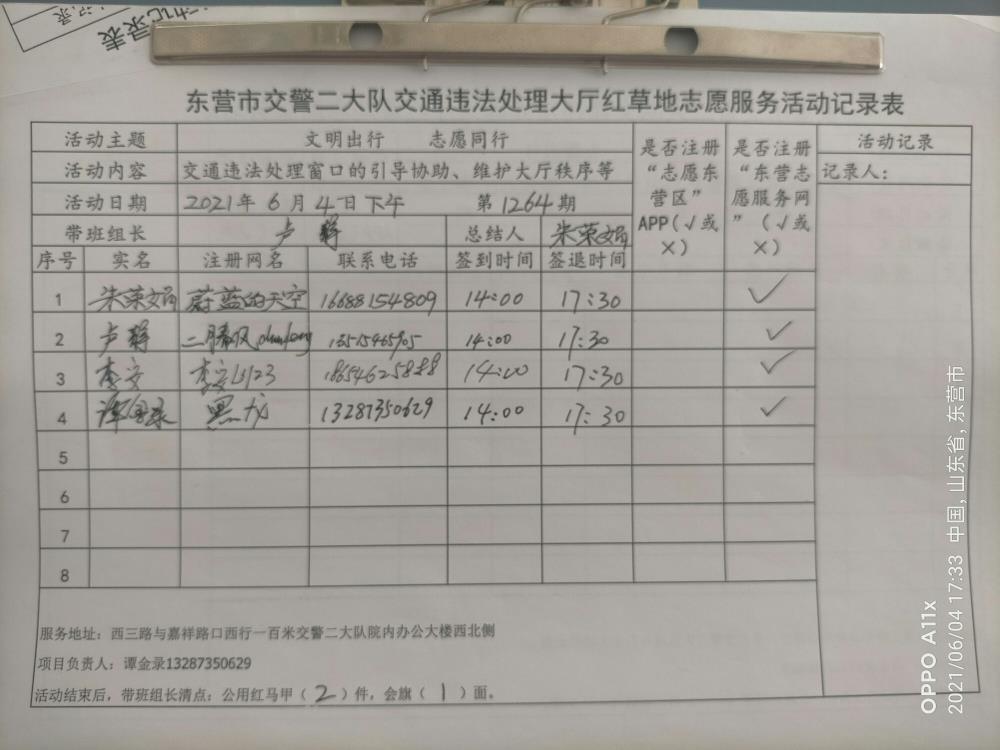 动记录表
东营市交警二大队交通违法处理大厅红草地志愿服务活动记录表
活动主题 文明出行 志愿同行 是否注册“志愿东营区”APP(√或×) 是否注册“东营志愿服务网”(√或×) 活动记录
活动内容 交通违法处理窗口的引导协助、维护大厅秩序等 记录人:
活动日期 2021年 6月 4日下午 第1264期
带班组长 卢 总结人 朱荣娟
序号 实名 注册网名 联系电话 签到时间 签退时间
1 朱荣娟 蔚蓝的天空 16688154809 14:00 17:30 ✓
2 卢 二月 14:00 17:30 ✓
3 李安 李安 14:00 17:30 ✓
4 谭金录 黑龙 13287350629 14:00 17:30 ✓
5
6
7
8
服务地址:西三路与嘉祥路口西行一百米交警二大队院内办公大楼西北侧
项目负责人:谭金录13287350629
活动结束后,带班组长清点:公用红马甲(2)件,会旗(1)面。
OPPO A11x
2021/06/04 17:33 中国,山东省,东营市